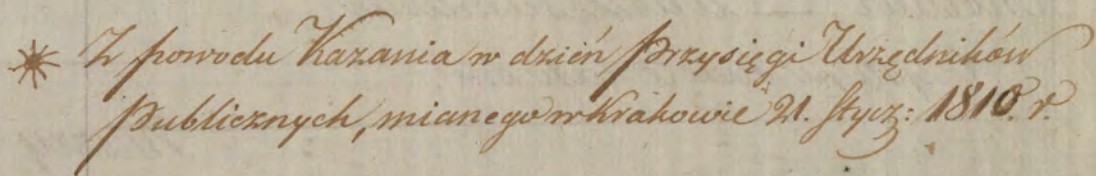 * Z powodu Kazania w dzień Przysięgi Urzędników
Publicznych, mianego w Krakowie 21. Stycz: 1810. r.